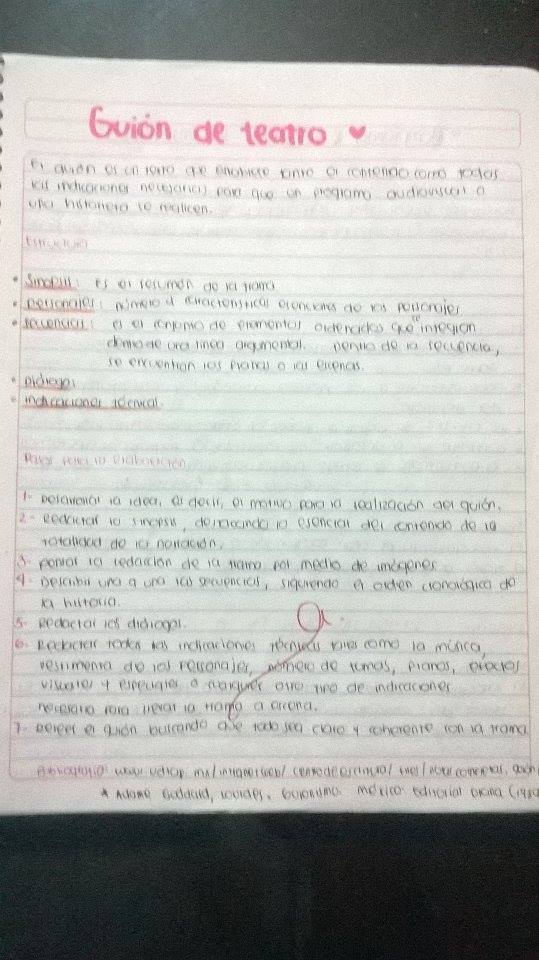 Guión de teatro
El guión es un texto que contiene tanto el contenido como todas
las indicaciones necesarias para que un programa audiovisual o
una historieta se realicen.
Estructura
• Sinopsis: Es el resumen de la trama
• personajes: número y características esenciales de los personajes
• secuencias: es el conjunto de elementos ordenados que integran
una línea argumental. Dentro de la secuencia,
se encuentran los planos o las escenas.
• Diálogos
• Indicaciones técnicas.
Pasos para la elaboración
1- Determinar la idea, es decir, el motivo para la realización del guión.
2- Redactar la sinopsis, destacando lo esencial del contenido de la
totalidad de la narración.
3- pensar la redacción de la trama por medio de imágenes
4- Describir una a una las secuencias, siguiendo el orden cronológico de
la historia.
5- Redactar los diálogos.
6- Redactar todas las indicaciones técnicas tales como la música,
vestimenta de los personajes, número de tomas, planos, efectos
visuales y especiales o cualquier otro tipo de indicaciones
necesario para llevar la trama a escena.
7- Releer el guión buscando que todo sea claro y coherente con la trama
Bibliografía:
* Adame Goddard, Lourdes, México Editorial